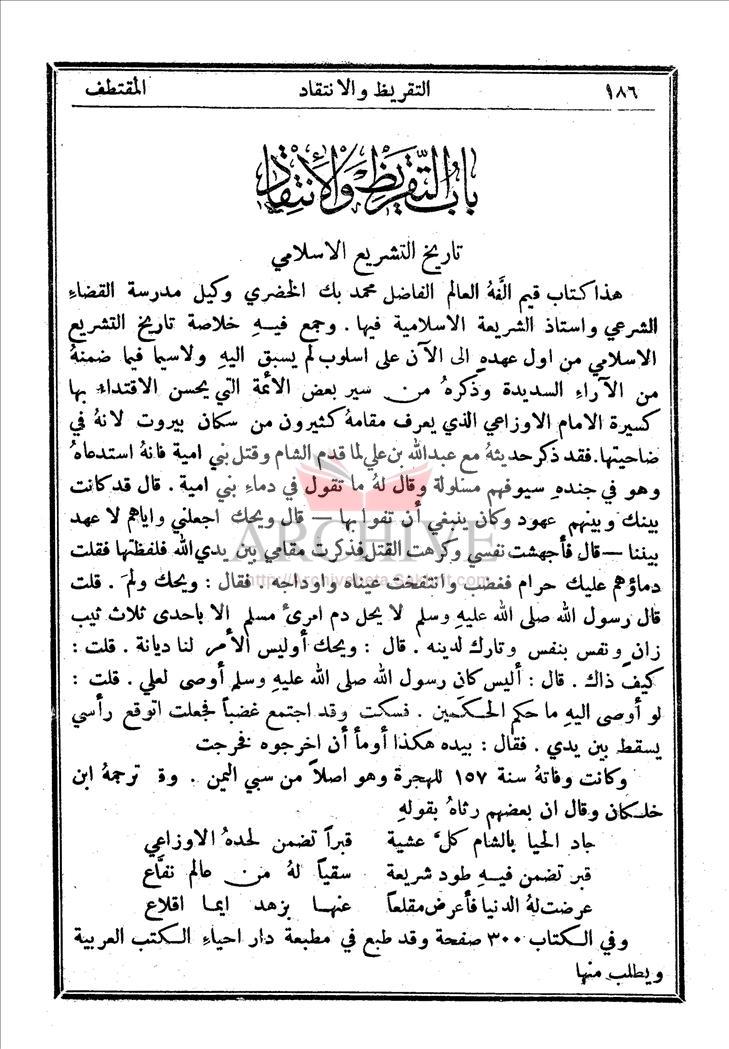 ١٨٦ التقريظ والانتقاد المقتطف
باب التقريظ والانتقاد
تاريخ التشريع الاسلامي
هذا كتاب قيم الَّفهُ العالم الفاضل محمد بك الخضري وكيل مدرسة القضاءِ
الشرعي واستاذ الشريعة الاسلامية فيها . وجمع فيــهِ خلاصة تاريخ التشريع
الاسلامي من اول عهدهِ الى الآن على اسلوب لم يسبق اليهِ ولاسيما فيما ضمنهُ
من الآراءِ السديدة وذكرهُ من سير بعض الأئمة التي يحسن الاقتداءُ بها
كسيرة الامام الاوزاعي الذي يعرف مقامهُ كثيرون من سكان بيروت لانهُ في
ضاحيتها.فقد ذكر حديثهُ مع عبدالله بن علي لما قدم الشام وقتل بني امية فانهُ استدعاهُ
وهو في جندهِ سيوفهم مسلولة وقال لهُ ما تقول في دماءِ بني امية . قال قد كانت
بينك وبينهم عهود وكان ينبغي أن تفوا بها — قال ويحك اجعلني واياهم لا عهد
بيننا — قال فأجهشت نفسي وكرهت القتل فذكرت مقامي بين يدي الله فلفظتها فقلت
دماؤهم عليك حرام فغضب وانتفخت عيناه واوداجه . فقال : ويحك ولمَ . قلت
قال رسول الله صلى الله عليهِ وسلم لا يحل دم امرئ مسلم الا باحدى ثلاث ثيب
زان ونفس بنفس وتارك لدينه . قال : ويحك أوليس الأمر لنا ديانة . قلت :
كيف ذاك . قال : أليس كان رسول الله صلى الله عليهِ وسلم أوصى لعلي . قلت :
لو أوصى اليهِ ما حكم الحكمين . فسكت وقد اجتمع غضباً فجعلت اتوقع رأسي
يسقط بين يدي . فقال : بيده هكذا أومأ أن اخرجوه فخرجت
وكانت وفاتهُ سنة ١٥٧ للهجرة وهو اصلاً من سبي اليمن . وقد ترجمهُ ابن
خلكان وقال ان بعضهم رثاهُ بقولهِ
جاد الحيا بالشام كلَّ عشية قبراً تضمن لحدهُ الاوزاعي
قبر تضمن فيــهِ طود شريعة سقياً لهُ من عالم نفَّاع
عرضت لهُ الدنيا فأعرض مقلعاً عنهــا بزهد ايما اقلاع
وفي الكتاب ٣٠٠ صفحة وقد طبع في مطبعة دار احياءِ الكتب العربية
ويطلب منها
ARCHIVE
http://Archivebeta.Sakhrit.com